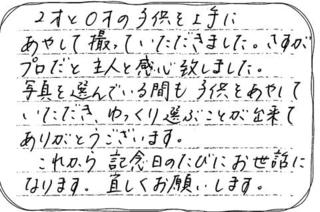 2才と0才の子供を上手に
あやして撮っていただきました。さすが
プロだと主人と感心致しました。
写真を選んでいる間も子供をあやして
いただき、ゆっくり選ぶことが出来て
ありがとうございます。
これから記念日のたびにお世話に
なります。宜しくお願いします。